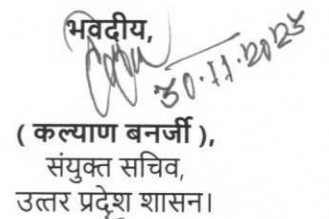 भवदीय,
30.11.2023
( कल्याण बनर्जी ),
संयुक्त सचिव,
उत्तर प्रदेश शासन।